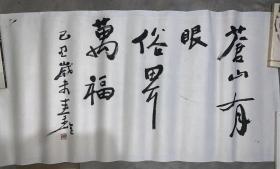 蒼山有
眼
俗眾
萬福
己丑歲末